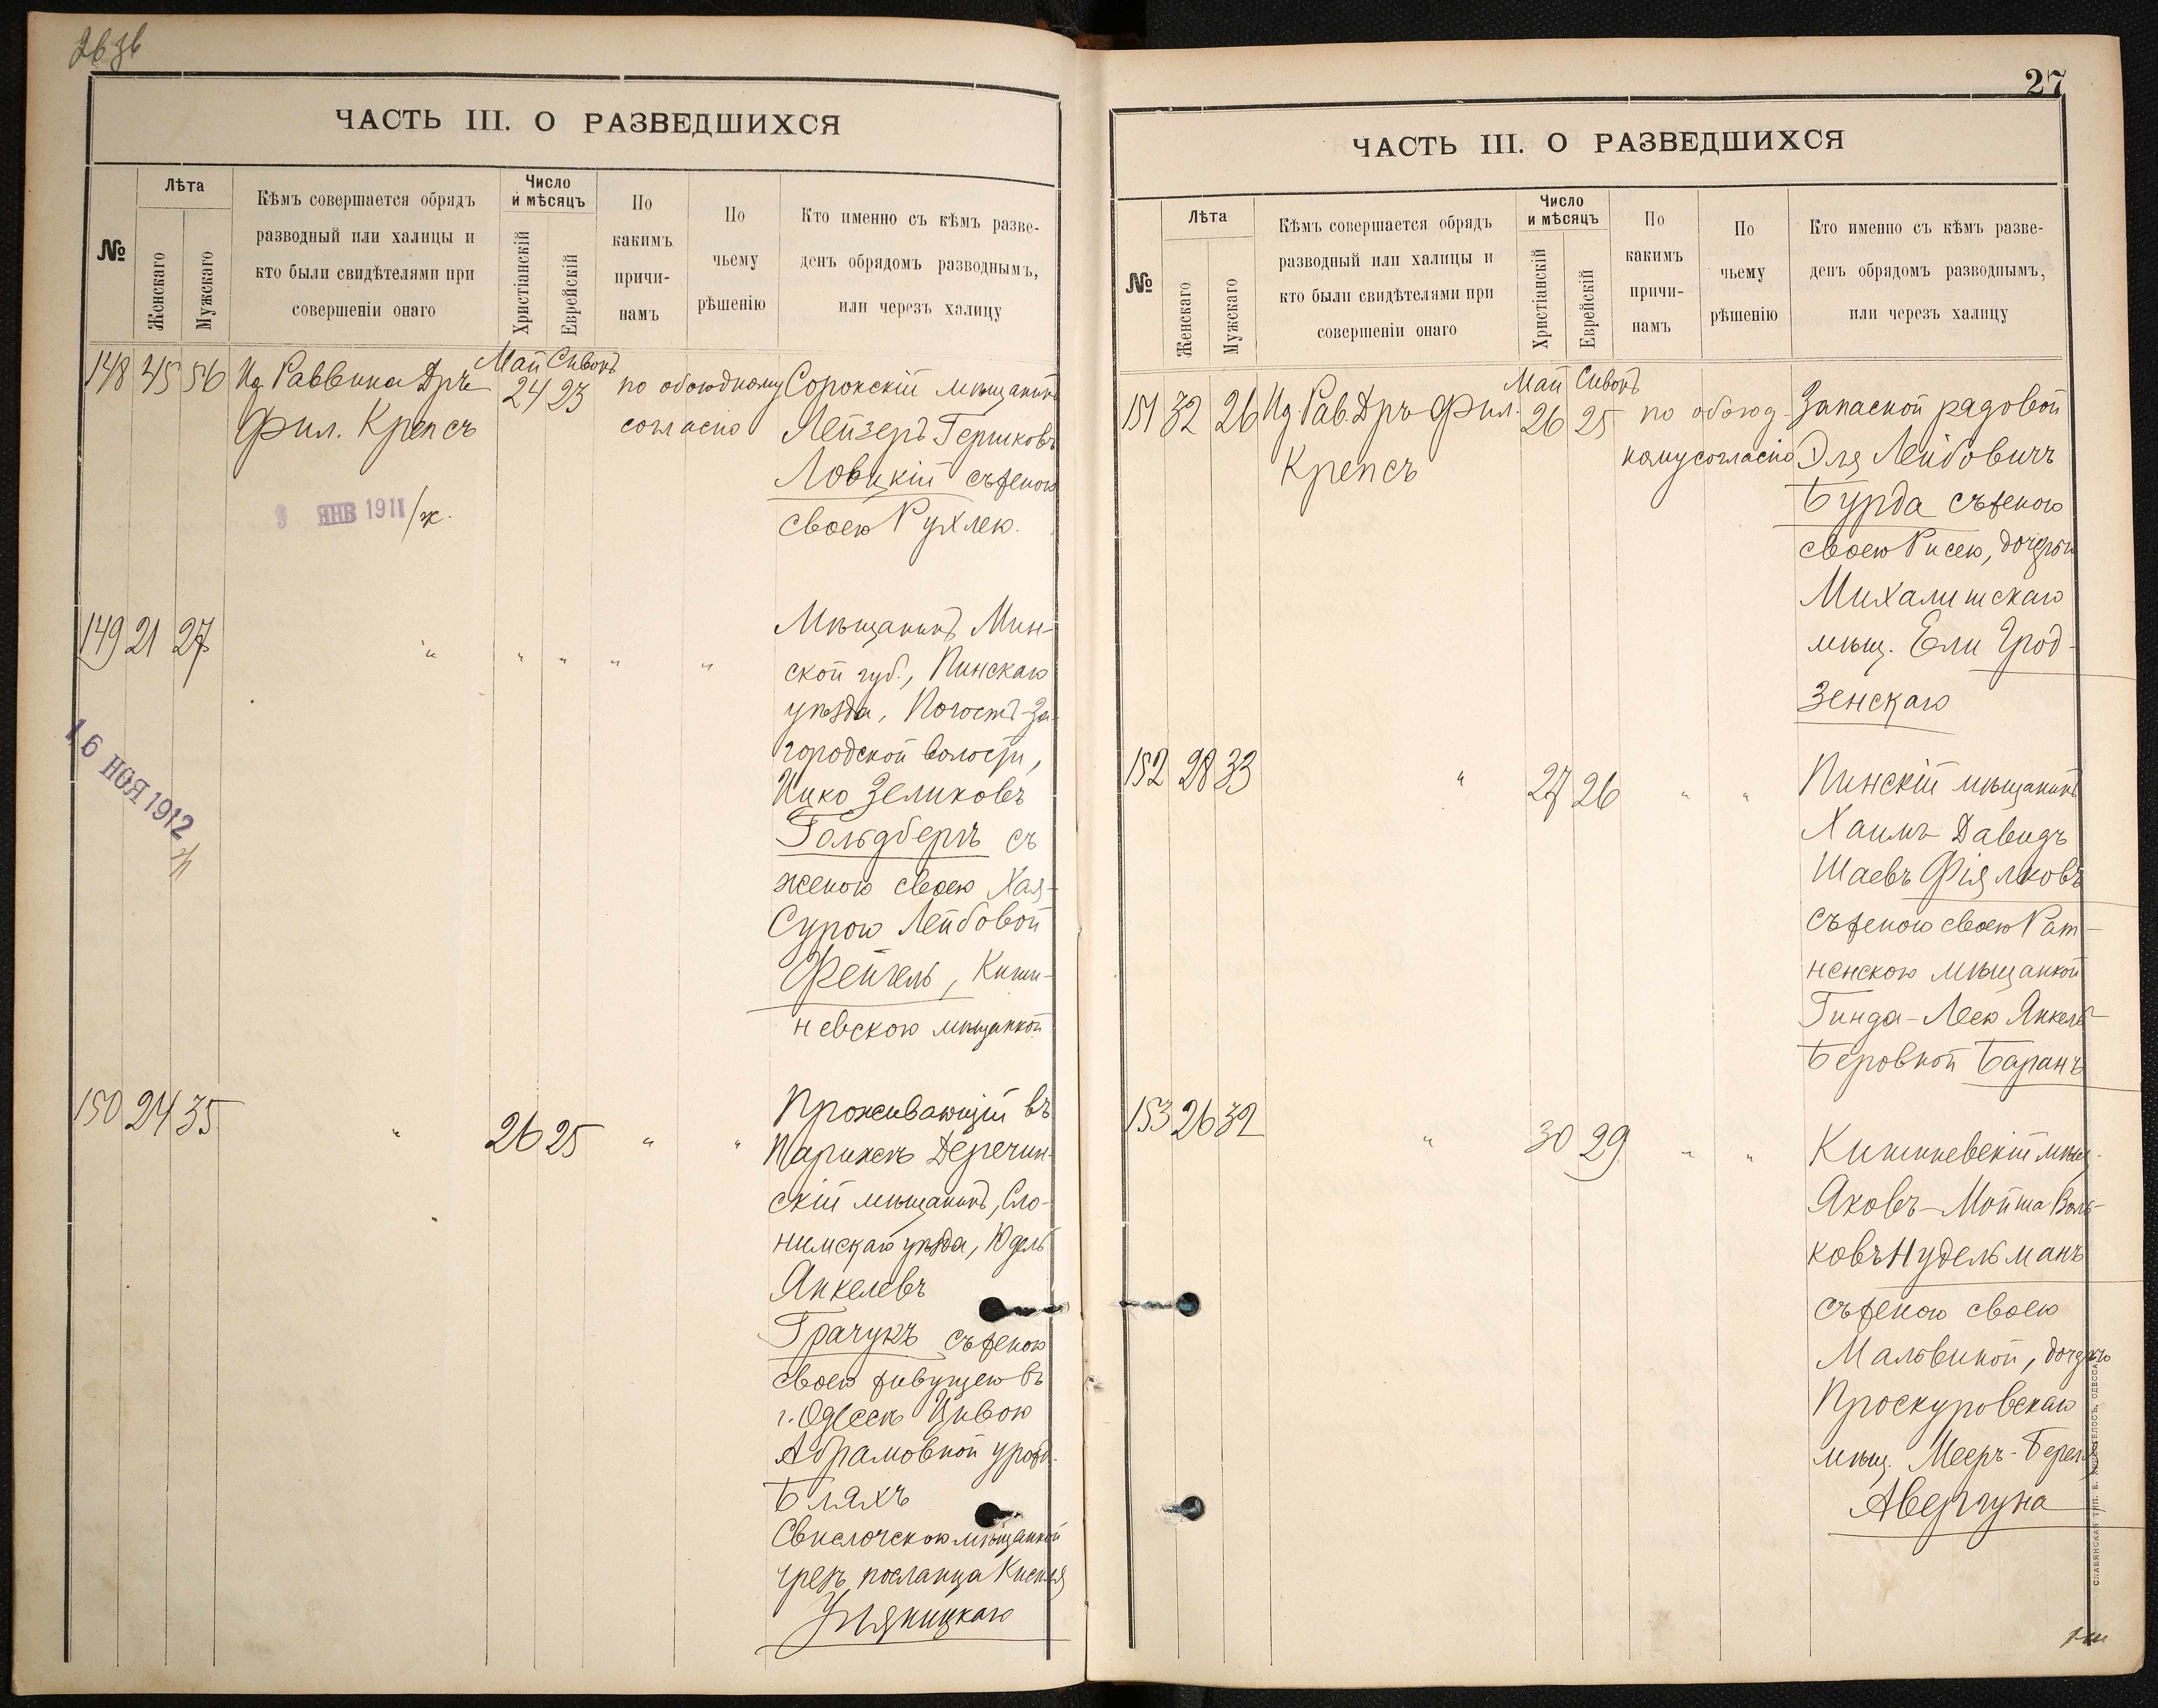 ЧАСТЬ III. О РАЗВЕДШИХСЯ
№
Лѣта
Женскаго
Мужскаго
Кѣмъ совершается обрядъ
разводный или халицы и
кто были свидѣтелями при
совершеніи онаго
Число
и мѣсяцъ
Христіанскій
Еврейскій
По
какимъ
причи-
намъ
По
чьему
рѣшенію
Кто именно съ кѣмъ разве-
денъ обрядомъ разводнымъ,
или черезъ халицу
148 45 56 Ид. Раввина Дръ Май Сивонъ
Фил. Крепсъ 24 23 по обоюдному
согласію
Сорокскій мѣщанинъ
Лейзеръ Гершковъ
Ловцкій съ женою
своею Рухлею.
9 ЯНВ 1911 /ж.
149 21 27 " " " " "
Мѣщанинъ Мин-
ской губ., Пинскаго
уѣзда, Погостъ-За-
городской волости,
Ицко Зеликовъ
Гольдбергъ съ
женою своею Хая-
Сурою Лейбовой
Фейгель, Киши-
невскою мѣщанкой
16 НОЯ 1912
150 24 35 " 26 25 " "
Проживающій въ
Парижѣ Деречин-
скій мѣщанинъ, Сло-
нимскаго уѣзда, Юдель
Янкелевъ
Грачукъ съ женою
своею живущею въ
г. Одессѣ Цивою
Абрамовной урожд.
Бляхъ
Свислочскою мѣщанкой
чрезъ посланца
27
ЧАСТЬ III. О РАЗВЕДШИХСЯ
№
Лѣта
Женскаго
Мужскаго
Кѣмъ совершается обрядъ
разводный или халицы и
кто были свидѣтелями при
совершеніи онаго
Число
и мѣсяцъ
Христіанскій
Еврейскій
По
какимъ
причи-
намъ
По
чьему
рѣшенію
Кто именно съ кѣмъ разве-
денъ обрядомъ разводнымъ,
или черезъ халицу
151 32 26 Ид. Рав. Дръ Фил. Май Сивонъ
Крепсъ 26 25 по обоюд-
ному согласію
Запасной рядовой
Эля Лейбовичъ
Бурда съ женою
своею Рисею, дочерью
Михалишскаго
мѣщ. Ели Грод-
зенскаго
152 28 33 " 27 26 " "
Пинскій мѣщанинъ
Хаимъ Давидъ
Шаевъ Фіялковъ
съ женою своею Рат-
ненскою мѣщанкой
Гинда-Леею Янкель-
Беровной Баранъ
153 26 32 " 30 29 " "
Кишиневскій мѣщ.
Яковъ-Мойша Воль-
ковъ Нудельманъ
съ женою своею
Мальвиной, дочерью
Проскуровскаго
мѣщ. Мееръ-Бера
Авергуна
СЛАВЯНСКАЯ ТИП. Е. ХРИСОГЕЛОСЪ, ОДЕССА